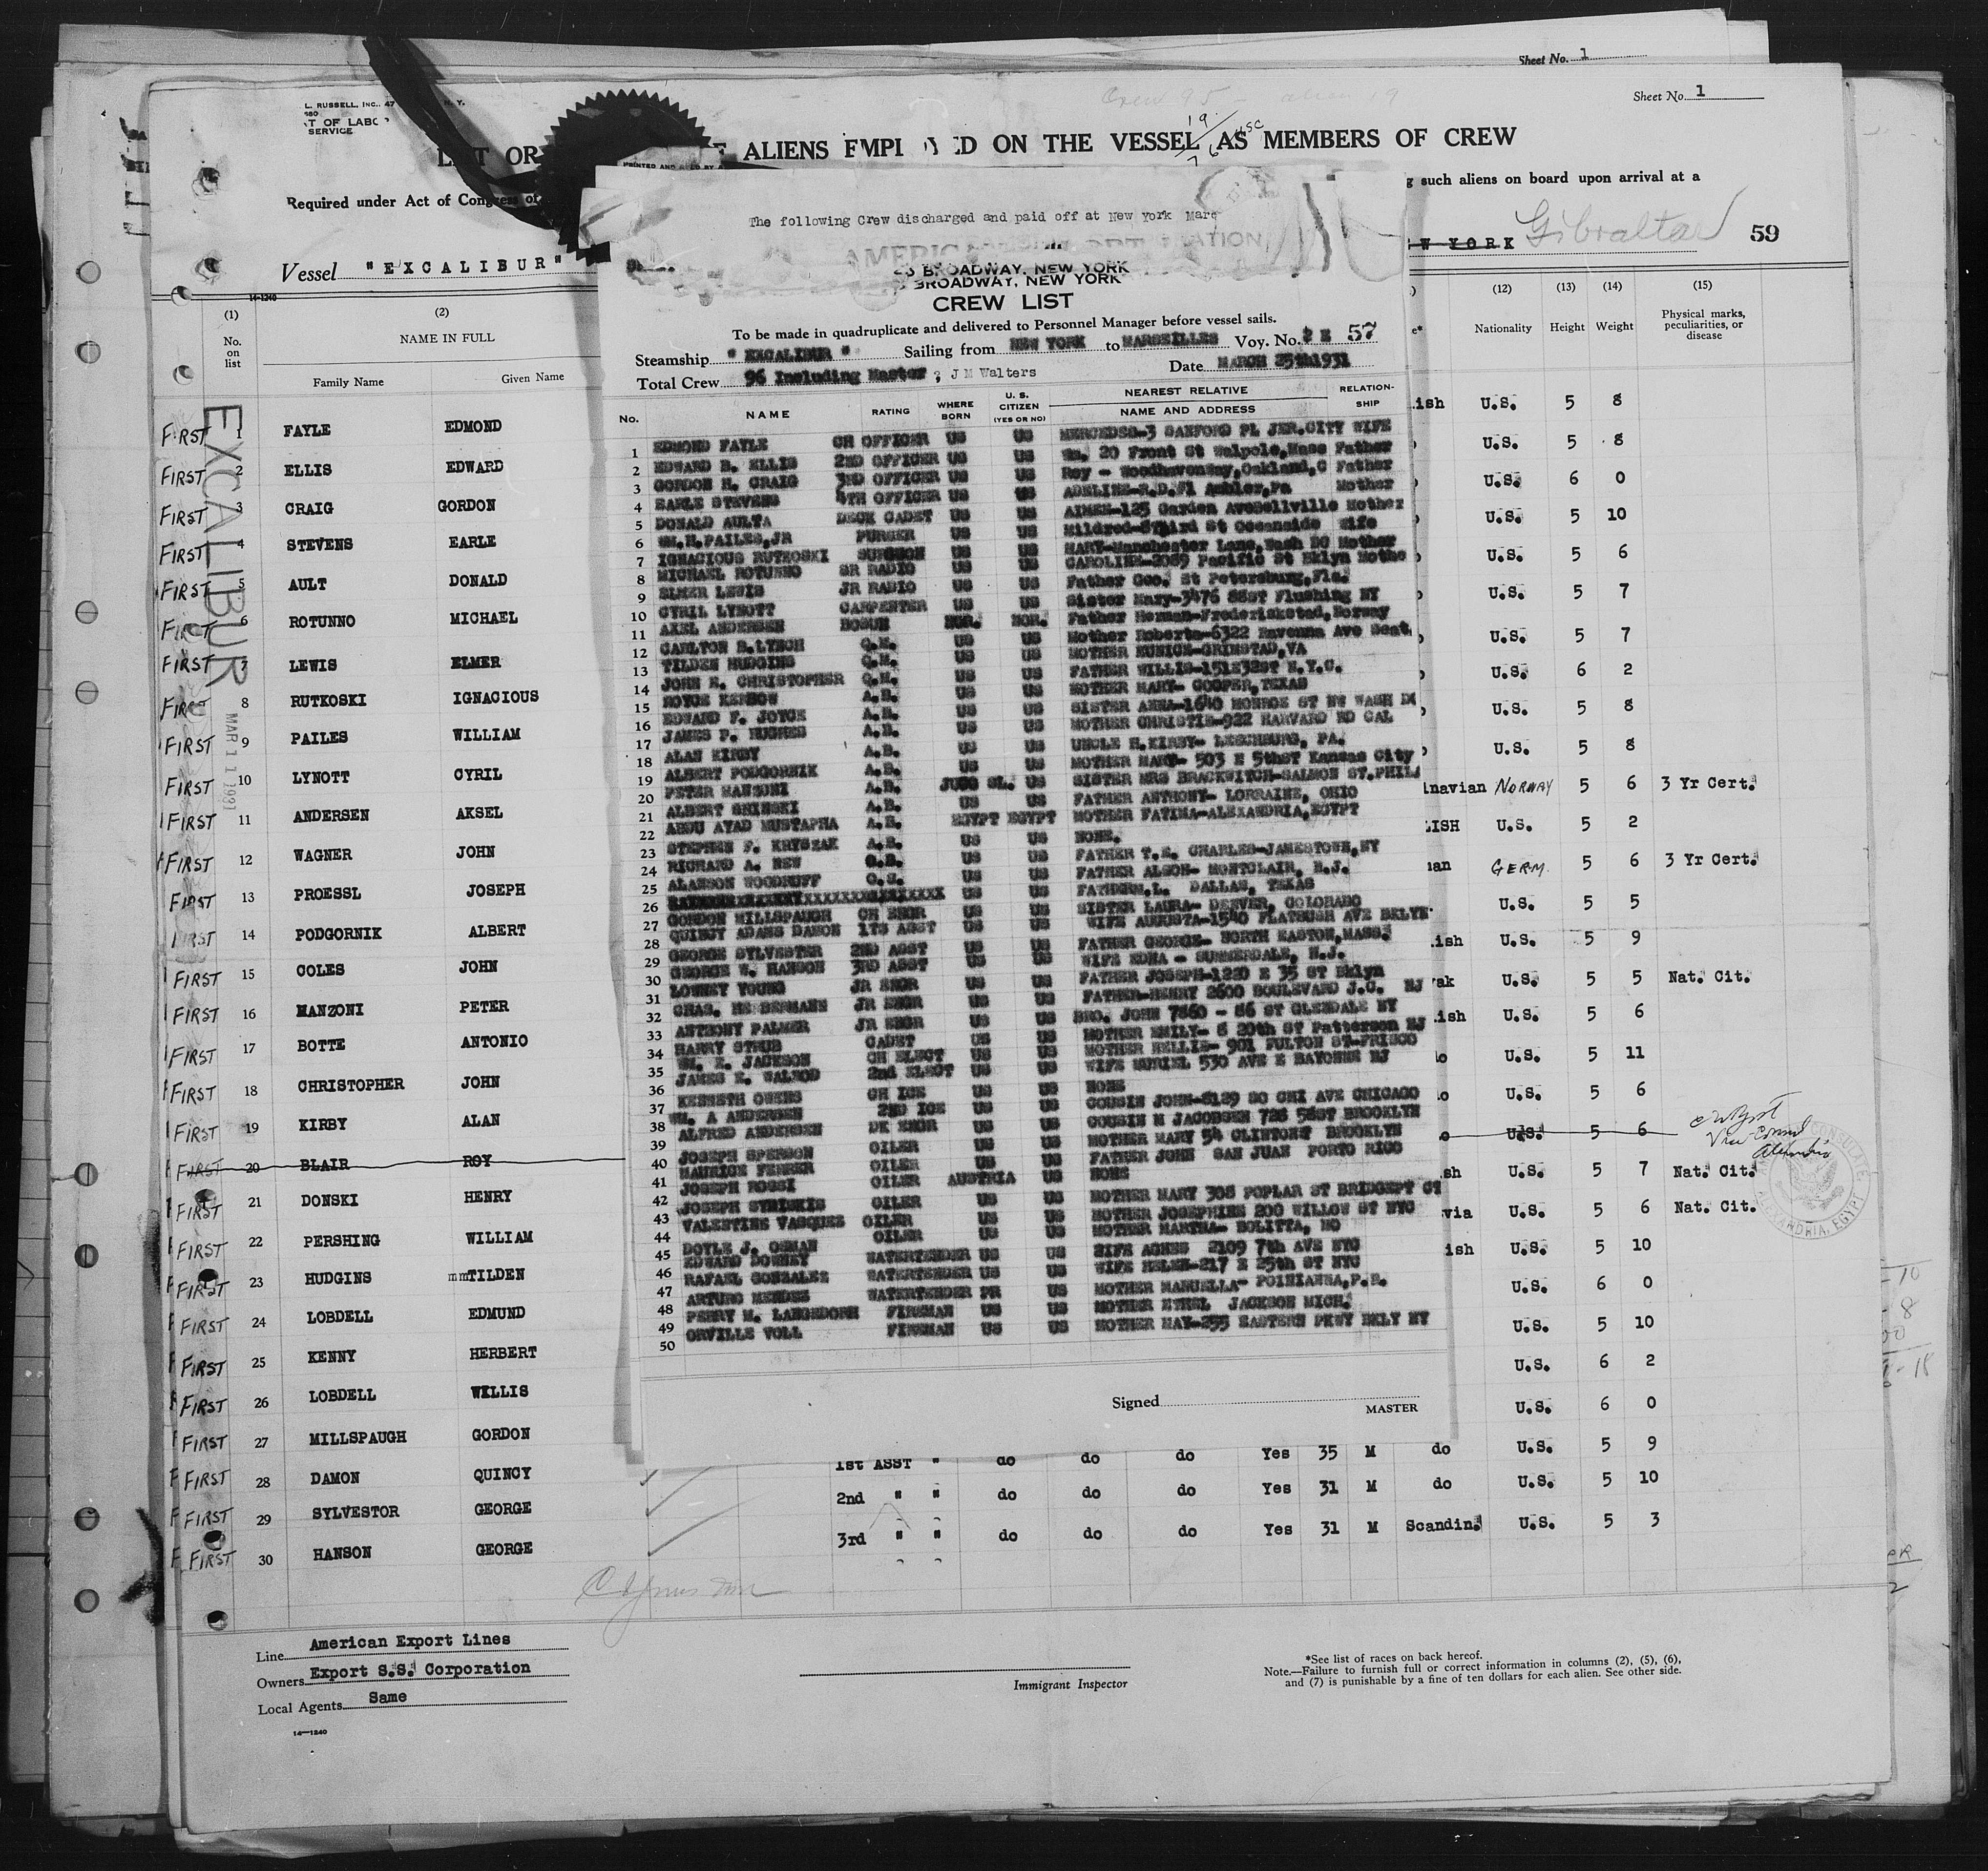 Sheet No. 1
Sheet No. 1
L. RUSSELL, INC., 47 N. Y.
T OF LABO
SERVICE
ALIENS EMPL ED ON THE VESSEL AS MEMBERS OF CREW
Required under Act of Congress of
g such aliens on board upon arrival at a
Vessel "EXCALIBUR"
W YORK Gibraltar 59
14-1240
(1) (2) (12) (13) (14) (15)
No. on list NAME IN FULL Nationality Height Weight Physical marks, peculiarities, or disease
Family Name Given Name
EXCALIBUR
MAR 11 1931
FIRST 1 FAYLE EDMOND U.S. 5 8
FIRST 2 ELLIS EDWARD U.S. 5 8
FIRST 3 CRAIG GORDON U.S. 6 0
FIRST 4 STEVENS EARLE U.S. 5 10
FIRST 5 AULT DONALD U.S. 5 6
FIRST 6 ROTUNNO MICHAEL U.S. 5 7
FIRST 7 LEWIS ELMER U.S. 5 7
FIRST 8 RUTKOSKI IGNACIOUS U.S. 6 2
FIRST 9 PAILES WILLIAM U.S. 5 8
FIRST 10 LYNOTT CYRIL U.S. 5 8
FIRST 11 ANDERSEN AKSEL inavian NORWAY 5 6 3 Yr Cert.
FIRST 12 WAGNER JOHN LISH U.S. 5 2
FIRST 13 PROESSL JOSEPH man GERM. 5 6 3 Yr Cert.
FIRST 14 PODGORNIK ALBERT U.S. 5 5
FIRST 15 COLES JOHN ish U.S. 5 9
FIRST 16 MANZONI PETER vak U.S. 5 5 Nat. Cit.
FIRST 17 BOTTE ANTONIO ish U.S. 5 6
FIRST 18 CHRISTOPHER JOHN U.S. 5 11
FIRST 19 KIRBY ALAN U.S. 5 6
FIRST 20 BLAIR ROY U.S. 5 6
FIRST 21 DONSKI HENRY sh U.S. 5 7 Nat. Cit.
FIRST 22 PERSHING WILLIAM via U.S. 5 6 Nat. Cit.
FIRST 23 HUDGINS mmTILDEN ish U.S. 5 10
FIRST 24 LOBDELL EDMUND U.S. 6 0
FIRST 25 KENNY HERBERT U.S. 5 10
FIRST 26 LOBDELL WILLIS U.S. 6 2
FIRST 27 MILLSPAUGH GORDON U.S. 6 0
FIRST 28 DAMON QUINCY 1st ASST " do do do Yes 35 M do U.S. 5 9
FIRST 29 SYLVESTOR GEORGE 2nd " " do do do Yes 31 M do U.S. 5 10
FIRST 30 HANSON GEORGE 3rd " " do do do Yes 31 M Scandin. U.S. 5 3
The following Crew discharged and paid off at New York Marc
BROADWAY, NEW YORK
BROADWAY, NEW YORK
CREW LIST
To be made in quadruplicate and delivered to Personnel Manager before vessel sails.
Steamship "EXCALIBUR" Sailing from NEW YORK to MARSEILLES Voy. No. 2 E 57
Total Crew 96 Including Master; J M Walters Date MARCH 25th1931
No. NAME RATING WHERE BORN U. S. CITIZEN (YES OR NO) NEAREST RELATIVE NAME AND ADDRESS RELATION-SHIP
1 EDMOND FAYLE CH OFFICER US US MERCEDSO-3 SANFORD PL JER.CITY WIFE
2 EDWARD B. ELLIS 2ND OFFICER US US Wm. 20 Front St Walpole,Mass Father
3 GORDON H. CRAIG 3RD OFFICER US US Roy - Woodhavenway,Oakland,C Father
4 EARLE STEVENS 4TH OFFICER US US ADELINE-R.D.#1 Ambler,Pa Mother
5 DONALD AULTA DECK CADET US US AIMEE-125 Garden AveBellville Mother
6 WM.H.PAILES,JR PURSER US US Mildred- Third St Oceanside Wife
7 IGNACIOUS RUTKOSKI SURGEON US US MARY-Manchester Lane,Wash DC Mother
8 MICHAEL ROTUNNO SR RADIO US US CAROLINE-2089 Pacific St Bklyn Mothe
9 ELMER LEWIS JR RADIO US US Father Geo. St Petersburg,Fla.
10 CYRIL LYNOTT CARPENTER US US Sister Mary-3476 88ST Flushing NY
11 AXEL ANDERSEN BOSUN NOR. NOR. Father Herman-Frederikstad,Norway
12 CARLTON B.LYNCH Q.M. US US Mother Roberta-6322 Ravenna Ave Seat.
13 TILDEN HUDGINS Q.M. US US MOTHER EUNICE-GRIMSTAD,VA
14 JOHN E. CHRISTOPHER Q.M. US US FATHER WILLIS-151E32ST N.Y.C.
15 ROYCE KERBOW A.B. US US MOTHER MARY- COOPER,TEXAS
16 EDWARD F. JOYCE A.B. US US SISTER ANNA-1640 MONROE ST NW WASH DC
17 JAMES P. HUGHES A.B. US US MOTHER CHRISTIE-922 HARVARD RD CAL
18 ALAN KIRBY A.B. US US UNCLE H.KIRBY- LEECHBURG, PA.
19 ALBERT PODGORNIK A.B. US US MOTHER MARY- 503 E 5thST Kansas City
20 PETER MANZONI A.B. JUGO SL. US SISTER MRS BRACKWITCH-SALMON ST.PHILA
21 ALBERT GRINSKI A.B. US US FATHER ANTHONY- LORRAINE, OHIO
22 ABDU AYAD MUSTAPHA A.B. EGYPT EGYPT MOTHER FATIMA-ALEXANDRIA,EGYPT
23 STEPHEN F. KRYSZAK A.B. US US NONE.
24 RICHARD A. NEW O.S. US US FATHER T.E. CHARLES-JAMESTOWN,NY
25 ALANSON WOODRUFF O.S. US US FATHER ALSON- MONTCLAIR, N.J.
26 US US FATHER DALLAS, TEXAS
27 GORDON MILLSPAUGH CH ENGR US US SISTER LAURA- DENVER, COLORADO
28 QUINCY ADAMS DAMON 1TS ASST US US WIFE AUGUSTA-1540 FLATBUSH AVE BKLYN
29 GEORGE SYLVESTER 2ND ASST US US FATHER GEORGE- NORTH EASTON,MASS.
30 GEORGE W. HANSON 3RD ASST US US WIFE EDNA - SUMMERDALE, N.J.
31 LOWNEY YOUNG JR ENGR US US FATHER JOSEPH-1220 E 35 ST Bklyn
32 CHAS. HEIBERMANN JR ENGR US US FATHER-HENRY 2600 BOULEVARD J.C. NJ
33 ANTHONY PALMER JR ENGR US US BRO. JOHN 7860 - 86 ST GLENDALE NY
34 HARRY STRUB CADET US US MOTHER EMILY- 8 20th ST Patterson NJ
35 WM. E. JACKSON CH ELECT US US MOTHER NELLIE- 901 FULTON ST-FRISCO
36 JAMES E. WALROD 2nd ELECT US US WIFE MURIEL 530 AVE E BAYONNE NJ
37 KENNETH OWENS CH ICE US US NONE
38 WM. A ANDERSEN 2ND ICE US US COUSIN JOHN-8129 SO CHI AVE CHICAGO
39 ALFRED ANDERSEN DK ENGR US US COUSIN N JACOBSEN 726 56ST BROOKLYN
40 JOSEPH SPERSON OILER US US MOTHER MARY 54 CLINTONST BROOKLYN
41 MAURICE FERRER OILER US US FATHER JOHN SAN JUAN PORTO RICO
42 JOSEPH ROSSI OILER AUSTRIA US NONE
43 JOSEPH STNISKIS OILER US US MOTHER MARY 308 POPLAR ST BRIDGEPT CT
44 VALENTINE VASQUES OILER US US MOTHER JOSEPHINE 200 WILLOW ST NYC
45 DOYLE J. OSMAN OILER US US MOTHER MARTHA- BOLITTA, MO
46 EDWARD DOWNEY WATERTENDER US US WIFE AGNES 2109 7th AVE NYC
47 RAFAEL GONZALEZ WATERTENDER US US WIFE HELEN-217 E 25th ST NYC
48 ARTURO MENDES WATERTENDER PR US MOTHER MANUELLA- POINIANNA,P.R.
49 PERRY M. LANGHDORN FIREMAN US US MOTHER ETHEL JACKSON MICH.
50 ORVILLE VOLL FIREMAN US US MOTHER MAY-255 EASTERN PKWY BKLY NY
Signed
MASTER
Line American Export Lines
Owners Export S.S. Corporation
Local Agents Same
14-1240
Immigrant Inspector
*See list of races on back hereof.
Note.—Failure to furnish full or correct information in columns (2), (5), (6),
and (7) is punishable by a fine of ten dollars for each alien. See other side.